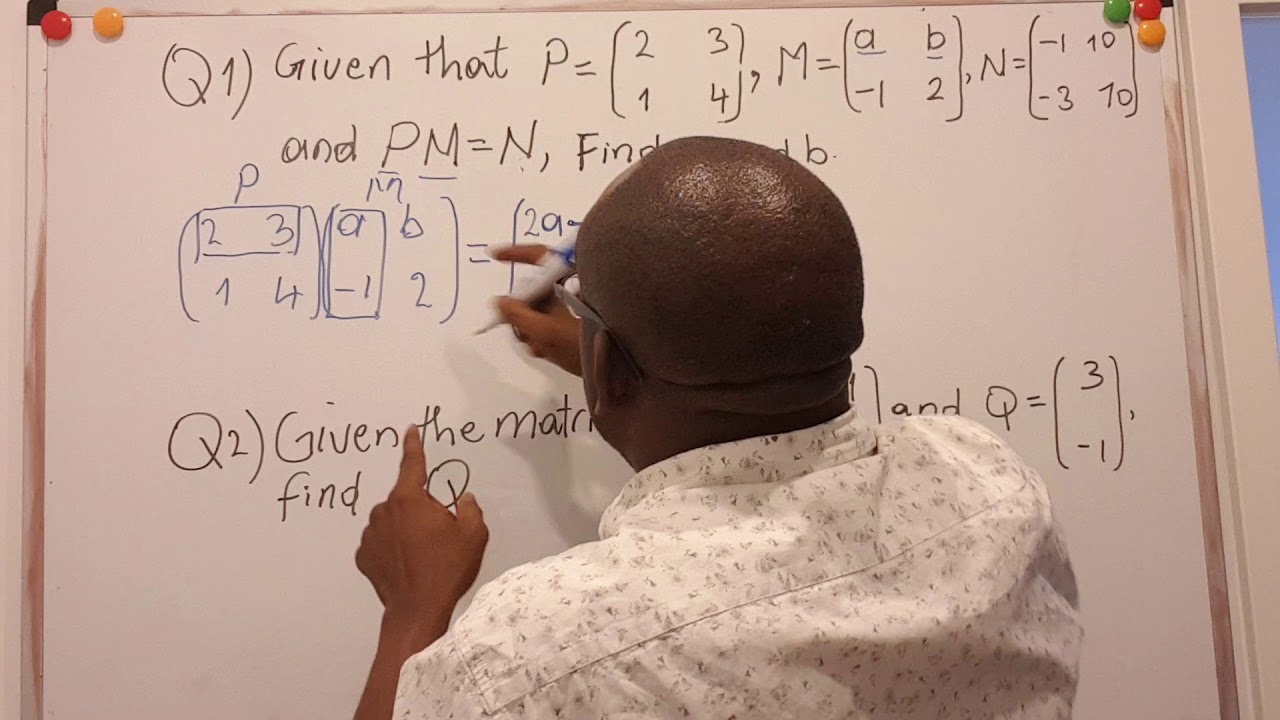 Q1) Given that P = (2 3 1 4), M = (a b -1 2), N = (-1 10 -3 10)
and PM = N, Find b.
P M
(2 3)(a b) = (2a
1 4 -1 2
Q2) Given the matri and Q = (3 -1),
find Q